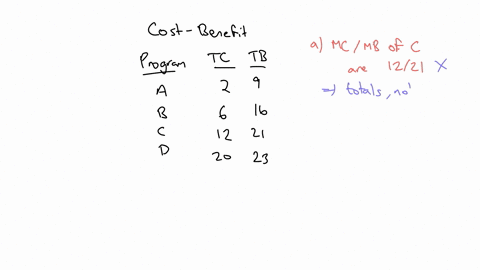 Cost-Benefit
Program TC TB
A 2 9
B 6 16
C 12 21
D 20 23
a) MC/MB of C
are 12/21 X
⇒ totals, no'